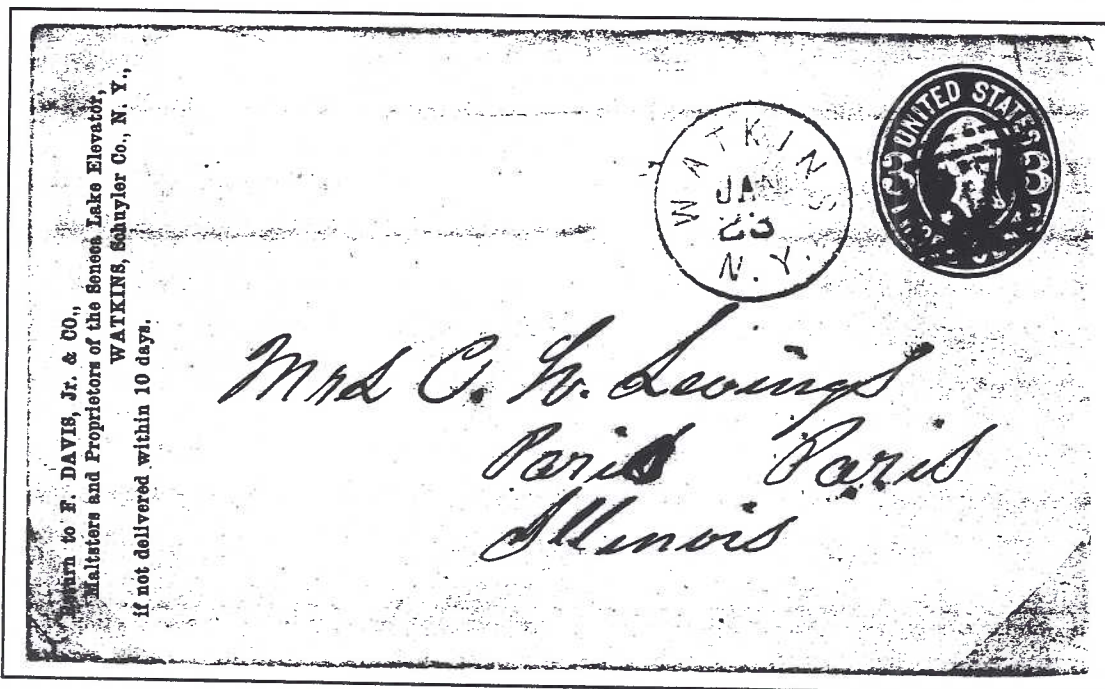 Return to F. DAVIS, Jr. & CO.,
Maltsters and Proprietors of the Seneca Lake Elevator,
WATKINS, Schuyler Co., N. Y.,
if not delivered within 10 days.
WATKINS
JAN
23
N. Y.
UNITED STATES
3 3
THREE CENTS
Mrs C. W. Levings
Paris Paris
Illinois